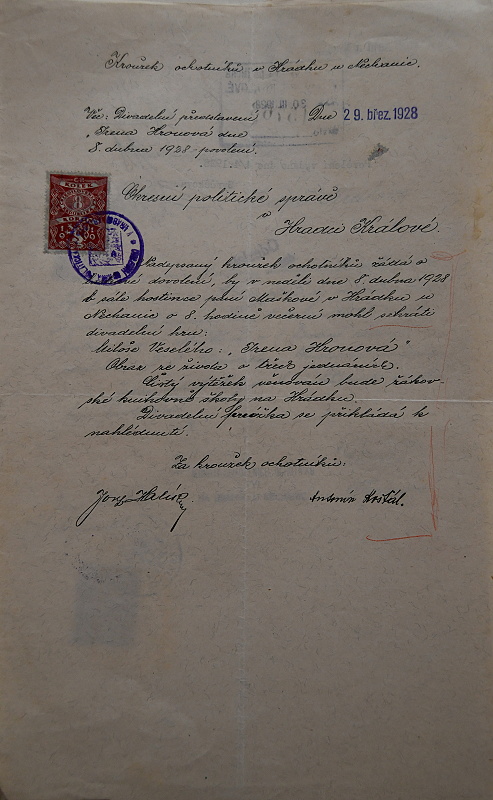 Kroužek ochotníků v Hrádku u Nechanic.
Věc: Divadelní představení
Dne 29. břez. 1928
„Irena Hronová dne
8. dubna 1928 - povolení.
Okresní politické správě
v Hradci Králové.
Nadepsaný kroužek ochotníků žádá o
dovolení, by v neděli dne 8. dubna 1928
v sále hostince paní Maškové v Hrádku u
Nechanic o 8. hodině večerní mohl sehráti
divadelní hru:
Miloše Veselého: „Irena Hronová"
Obraz ze života o třech jednáních.
Čistý výtěžek věnován bude žákov-
ské knihovně školy na Hrádku.
Divadelní příručka se přikládá k
nahlédnutí.
Za kroužek ochotníků:
Antonín Hrstál.